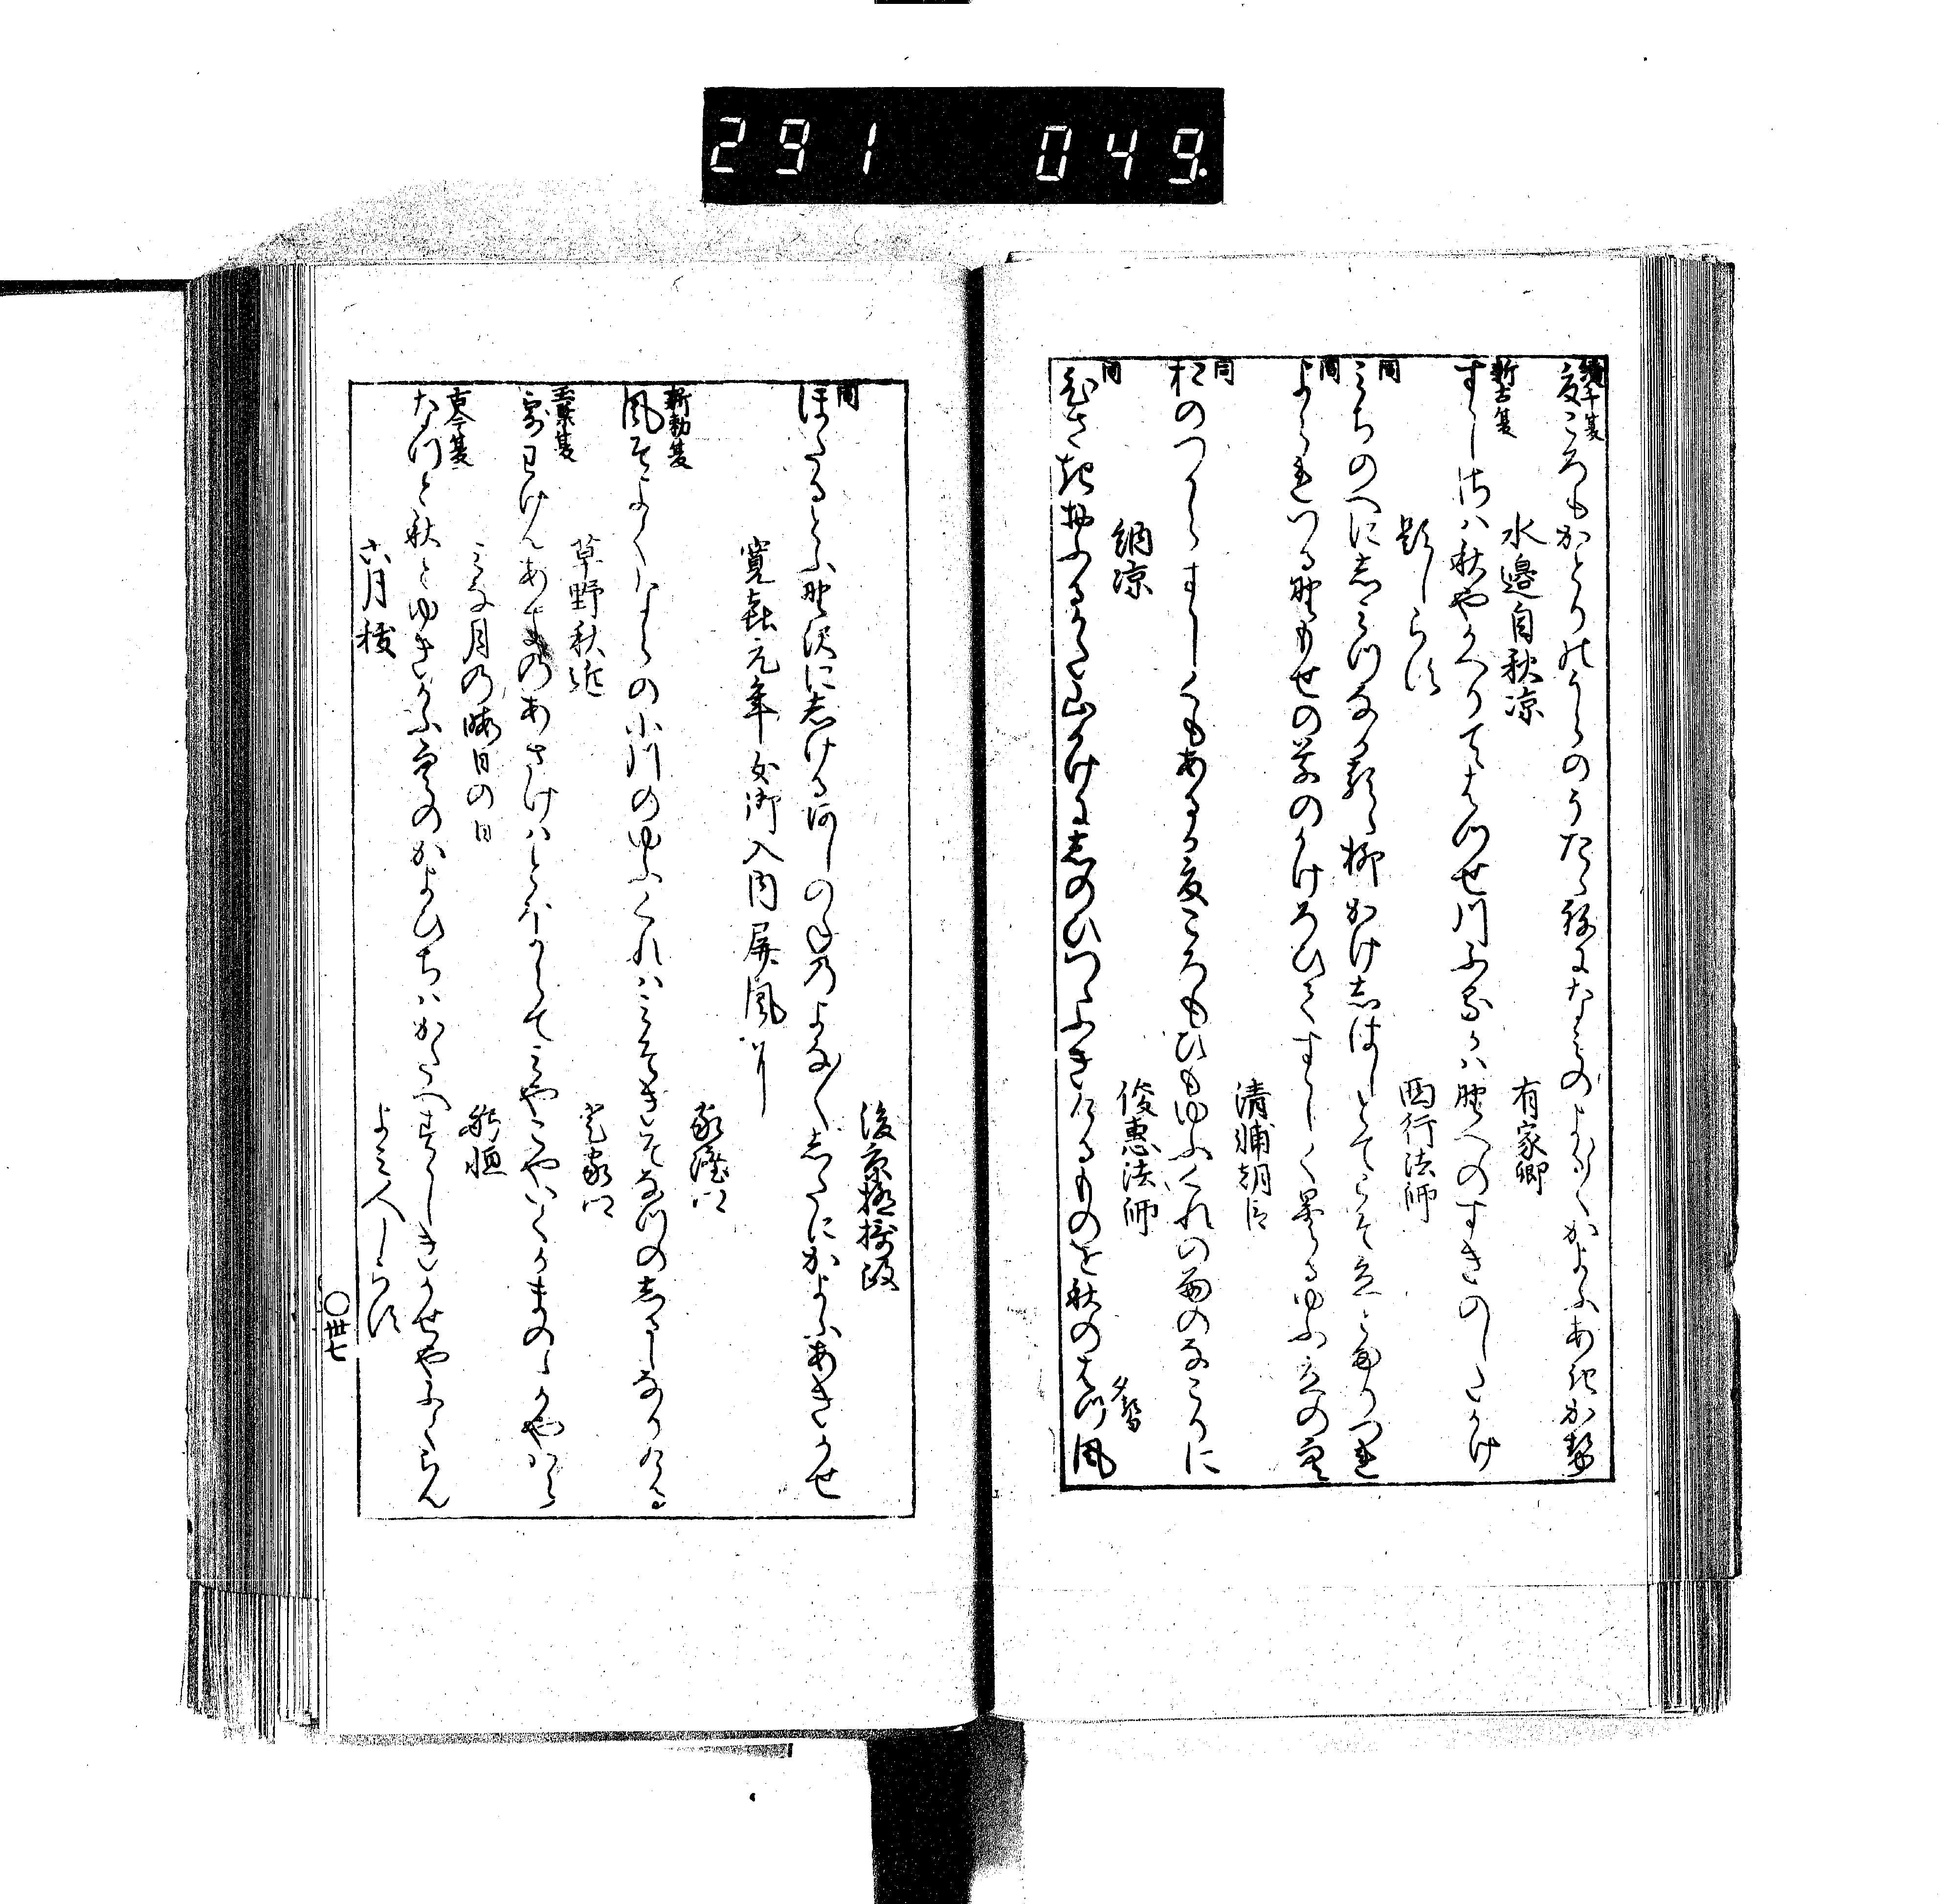 291 049
續千夏
夏ころもかとりのうらのうたゝねになみのよる〳〵かよふあきか勢
水邊自秋凉 有家卿
新古夏
すゝしさハ秋やかへりてはつせ川ふるかハ野へのすきのしたかけ
題しらす 西行法師
同
みちのへにしみつなかるゝ柳かけしはしとてこそ立とまりつれ
同
よられつる野もせの草のかけろひてすゝしく曇るゆふ立の空
清輔朝臣
同
おのつからすゝしくもあるか夏ころもひもゆふくれの雨のなこりに
納凉 俊惠法師
同
ひさき生ふるかた山かけにしのひつゝふきけるものを秋のはつ風
後京極攝政
同
ほたるとふ野沢にしけるあしのねのよな〳〵したにかよふあきかせ
寛喜元年女御入内屏風に
家隆卿
新勅夏
風そよくならの小川のゆふくれハみそきそなつのしるしなりける
草野秋近 定家卿
玉葉夏
露わけんあきのあさけハとほからてみやこやいくかまのゝかやハら
みな月の晦日の日 躬恒
古今夏
なつと秋とゆきかふ空のかよひちハかたへすゝしきかせやふくらん
六月祓 よみ人しらす
〇卅七